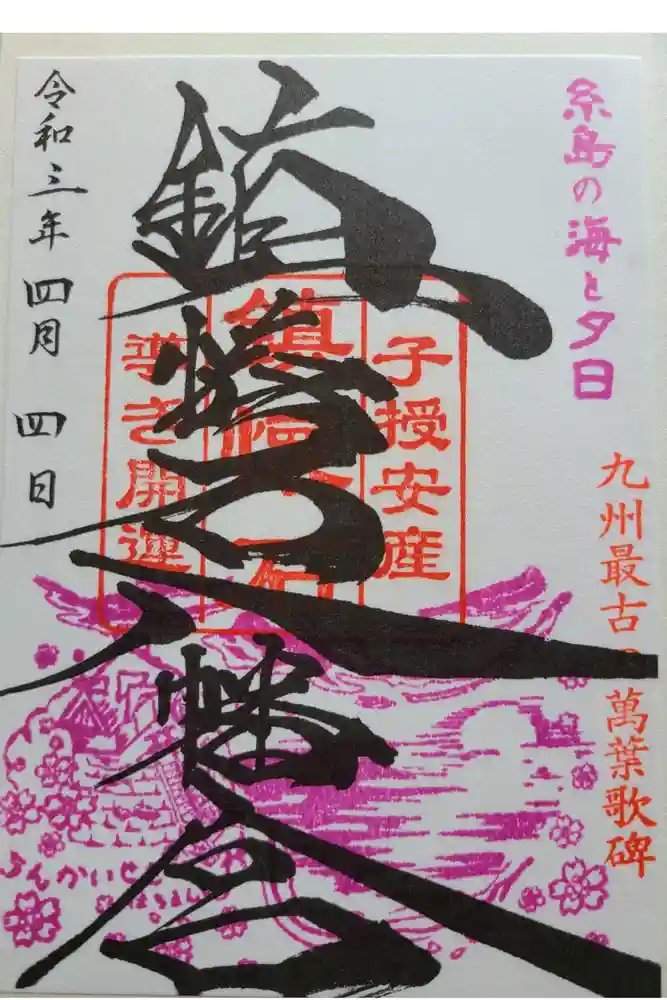 糸島の海と夕日
九州最古の萬葉歌碑
鎮懐石八幡宮
子授安産
鎮懐石
導き開運
令和三年四月四日